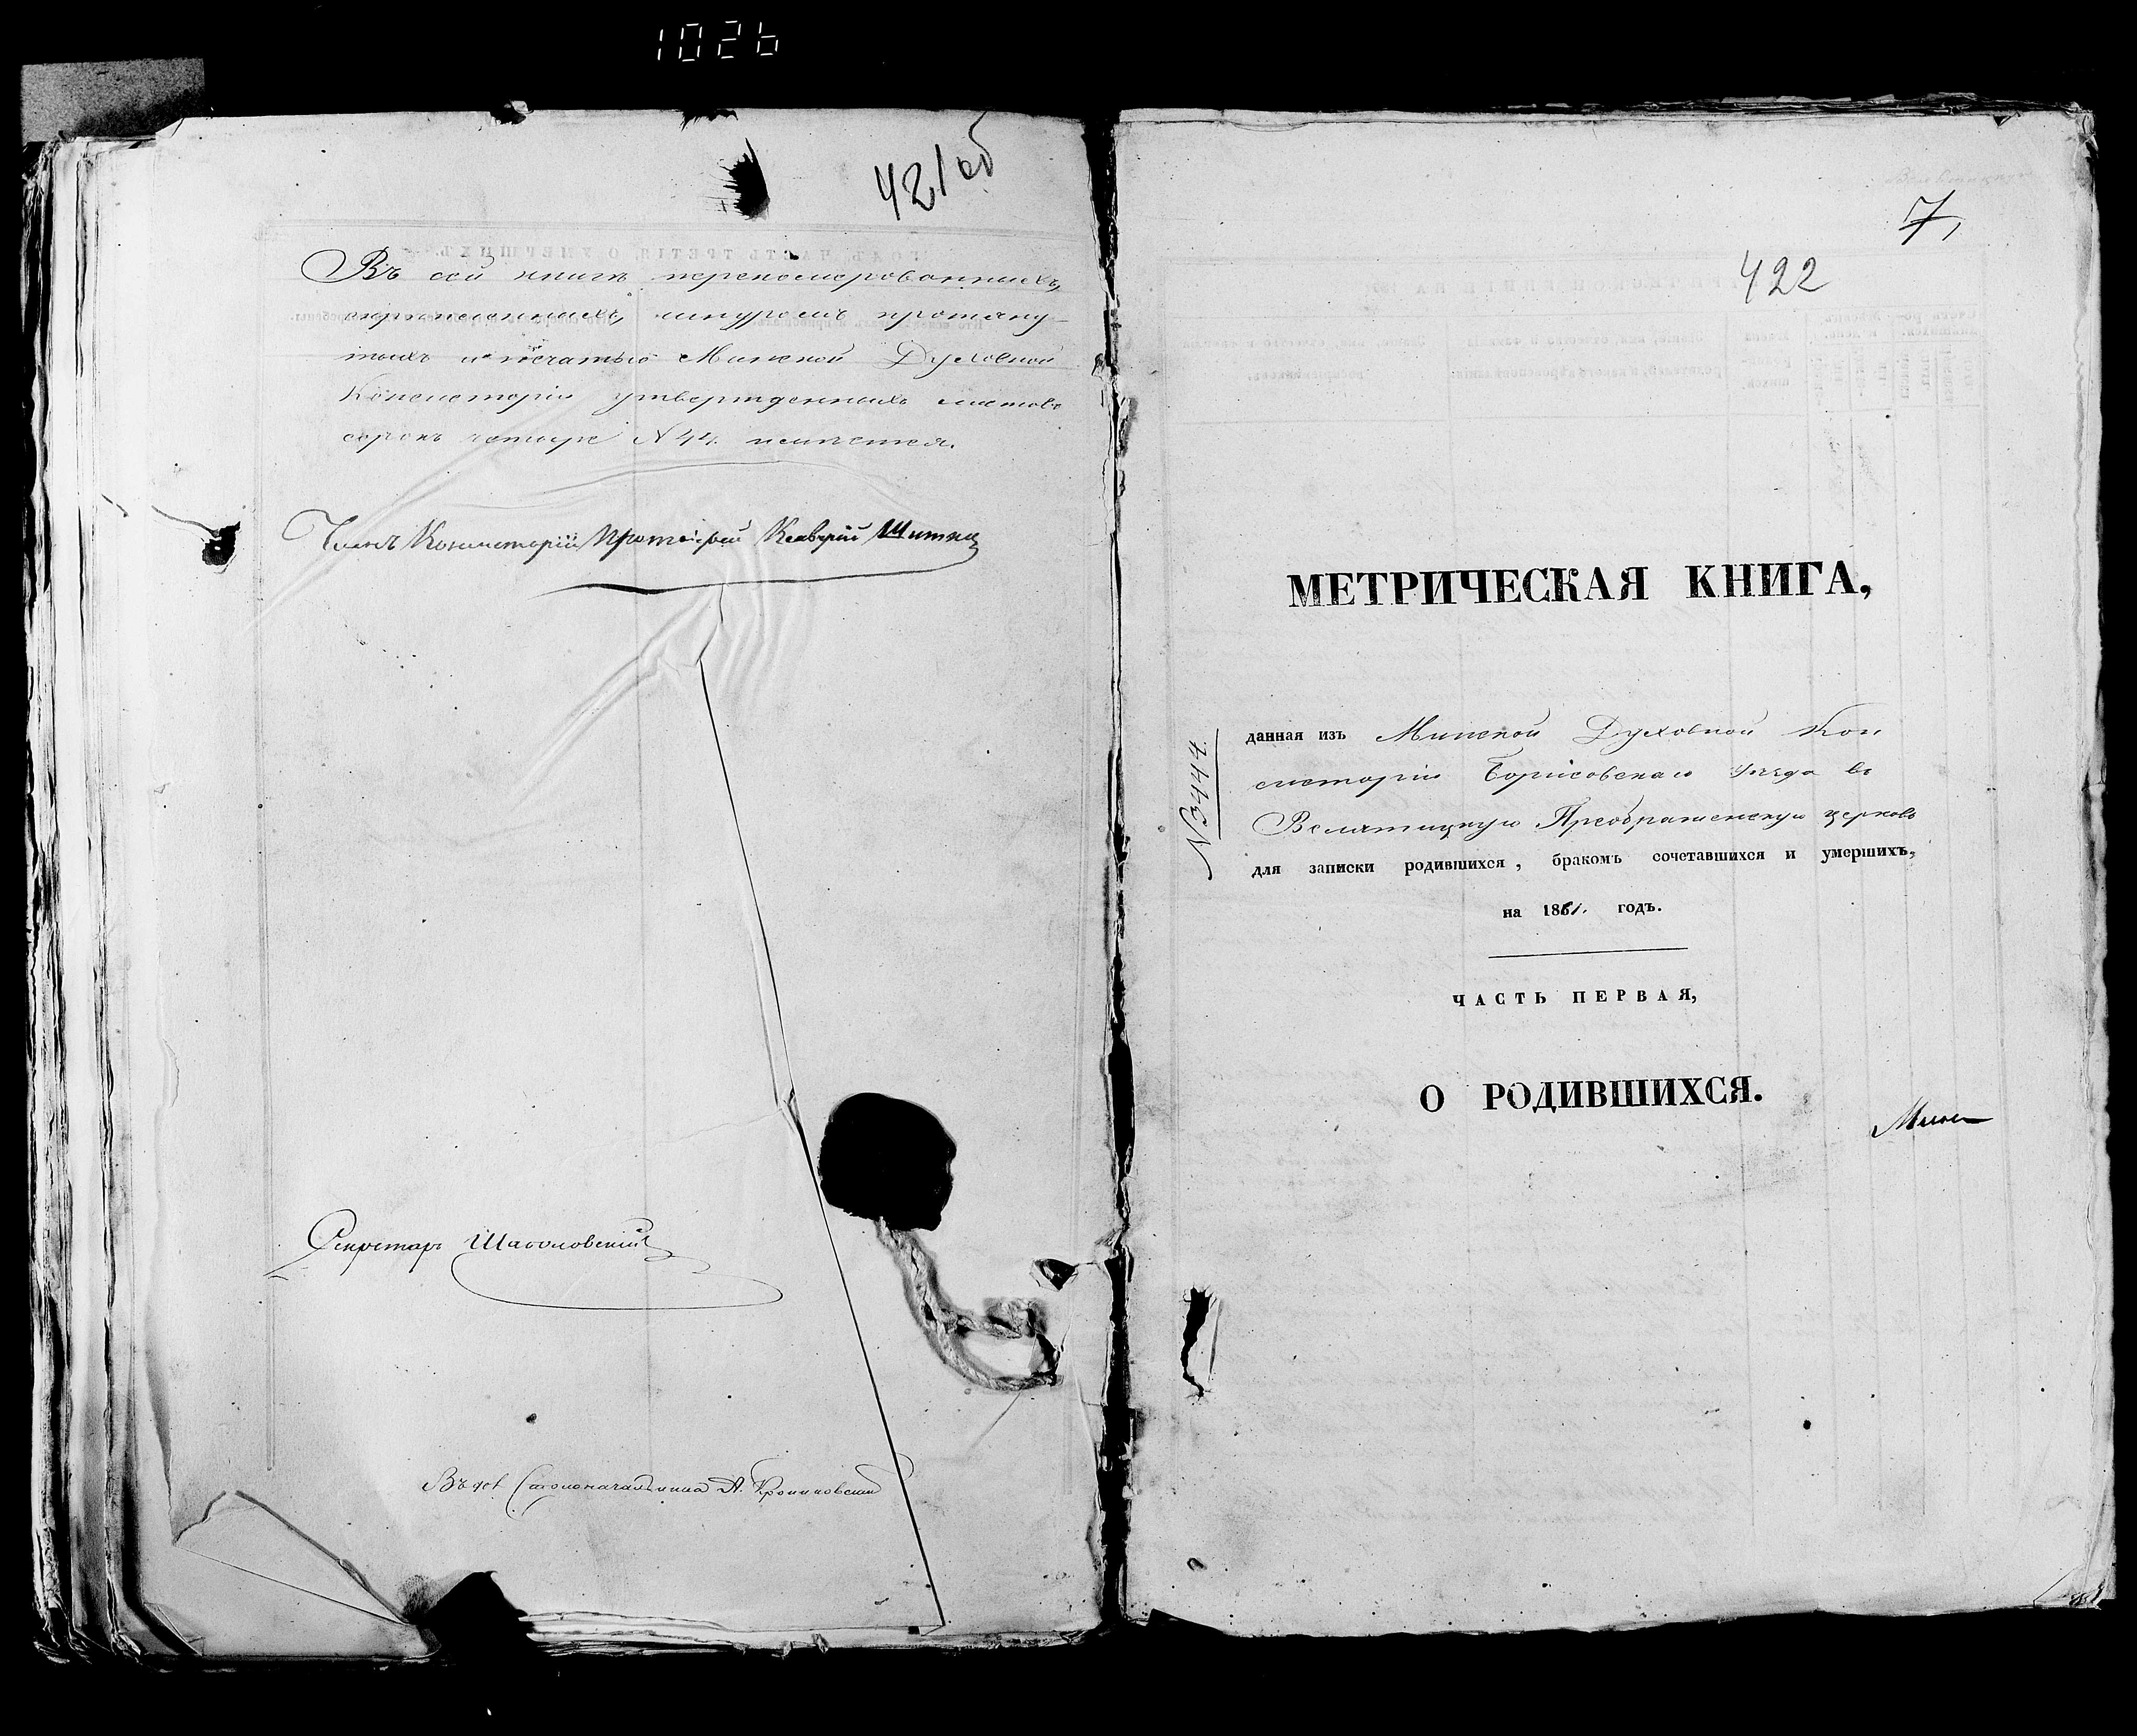 1026
421 об
Въ сей книгѣ перенумерованныхъ,
скрѣпленныхъ, шнуромъ протяну-
тыхъ и печатью Минской Духовной
Консисторіи утвержденныхъ листовъ
сорокъ четыре N 44. имѣется.
Членъ Консисторіи Протоіерей
Секретарь
Столоначальника А.
7,
422
МЕТРИЧЕСКАЯ КНИГА,
N 3444
данная изъ Минской Духовной Кон
систоріи Борисовскаго Уѣзда въ
Велятицкую Преображенскую церковь
для записки родившихся, бракомъ сочетавшихся и умершихъ,
на 1861. годъ.
ЧАСТЬ ПЕРВАЯ,
О РОДИВШИХСЯ.